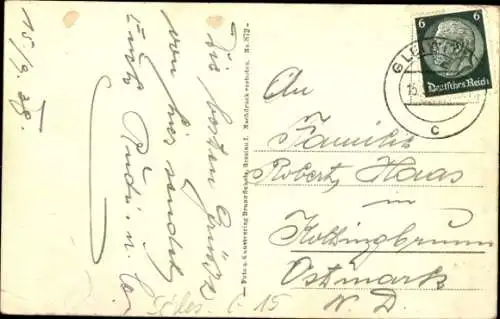 15/9. 38.
Die besten Grüsse
von hier sendet
Rudi. u.
An
Familie
Robert Haas
in
Kottingbrunn
Ostmark
N. D.
6 6
Deutsches Reich
GLE
15.
c
Foto u. Kunstverlag Bruno Scholz, Breslau 1. Nachdruck verboten. No. 872